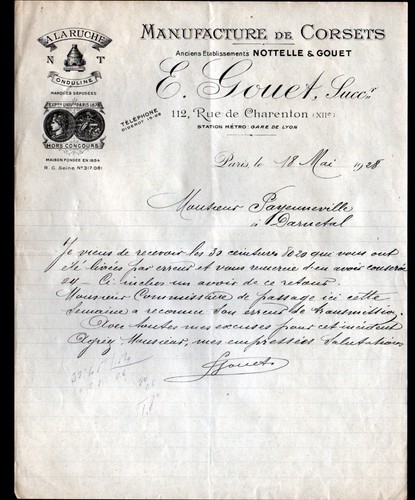 A LA RUCHE
N T
ONDULINE
MARQUES DÉPOSÉES
EXP. UNIV. PARIS 1878
HORS CONCOURS
MAISON FONDÉE EN 1854
R. C. Seine No 317.081
MANUFACTURE DE CORSETS
Anciens Etablissements NOTTELLE & GOUET
E. Gouet, Succr
TÉLÉPHONE
DIDEROT 19-28
112, Rue de Charenton (XIIe)
STATION MÉTRO: GARE DE LYON
Paris, le 18 Mai 1928
Monsieur Payenneville
à Darnetal
Je viens de recevoir les 30 ceintures 8020 que vous ont
été livrées par erreur et vous remercie d'en avoir conservé
04 - Ci-inclus un avoir de ce retour.
Monsieur Commissaire de passage ici cette
semaine a reconnu son erreur de transmission.
Avec toutes mes excuses pour cet incident
Agréez Monsieur, mes empressées salutations
Gouet